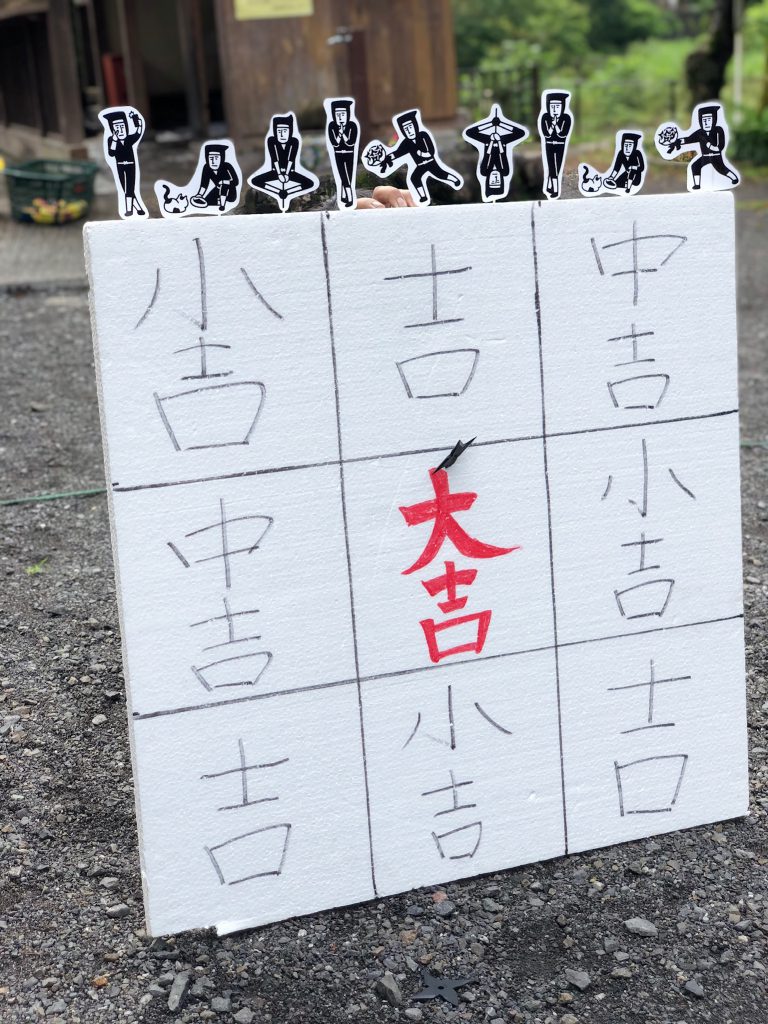 小吉
吉
中吉
中吉
大吉
小吉
吉
小吉
吉